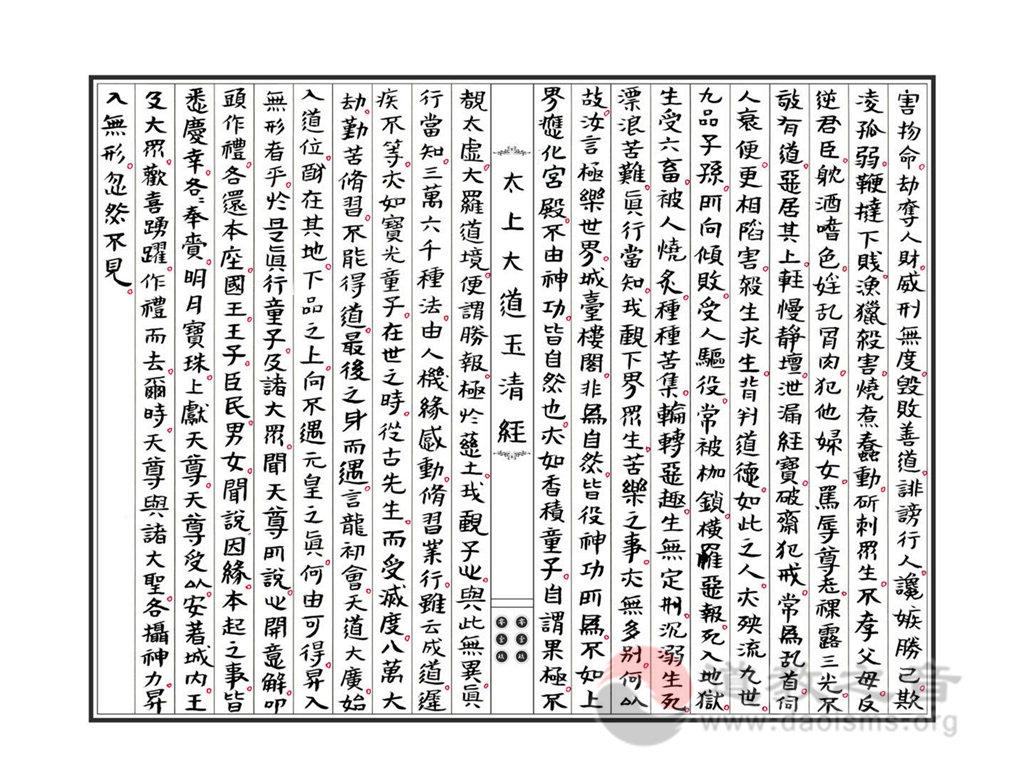 害物命劫奪人財威刑無度毀敗善道誹謗行人讒嫉勝己欺
凌孤弱鞭撻下賤漁獵殺害燒煮蠢動斫刺眾生不孝父母反
逆君臣躭酒嗜色婬乱骨肉犯他婦女罵辱尊老裸露三光不
敬有道惡居其上輕慢靜壇泄漏經寶破齋犯戒常為乱首向
人衰便更相陷害殺生求生背判道德如此之人夫殃流九世
九品子孫所向傾敗受人驅役常被枷鎖橫羅惡報死入地獄
生受六畜被人燒炙種種苦集輪轉惡趣生無定刑沉溺生死
漂浪苦難真行當知我觀下界眾生苦樂之事亦無多别何以
故汝言極樂世界城臺樓閣非為自然皆役神功所為不如上
界應化宮殿不由神功皆自然也亦如香積童子自謂果極不
太上大道玉清經
覩太虛大羅道境便謂勝報極於慈土我觀子心與此無異真
行當知三萬六千種法由人機緣感動脩習業行雖云成道遲
疾不等亦如寶光童子在世之時從古先生而受滅度八萬大
劫勤苦脩習不能得道最後之身而遇言龍初會天道大廣始
入道位酧在其地下品之上向不遇元皇之真何由可得昇入
無形者乎於是真行童子及諸大眾聞天尊所說心開意解叩
頭作禮各還本座國王王子臣民男女聞說因緣本起之事皆
悉慶幸各各奉賷明月寶珠上獻天尊天尊受以安著城内王
及大眾歡喜踴躍作禮而去爾時天尊與諸大聖各攝神力昇
入無形忽然不見
道教之音
www.daoisms.org